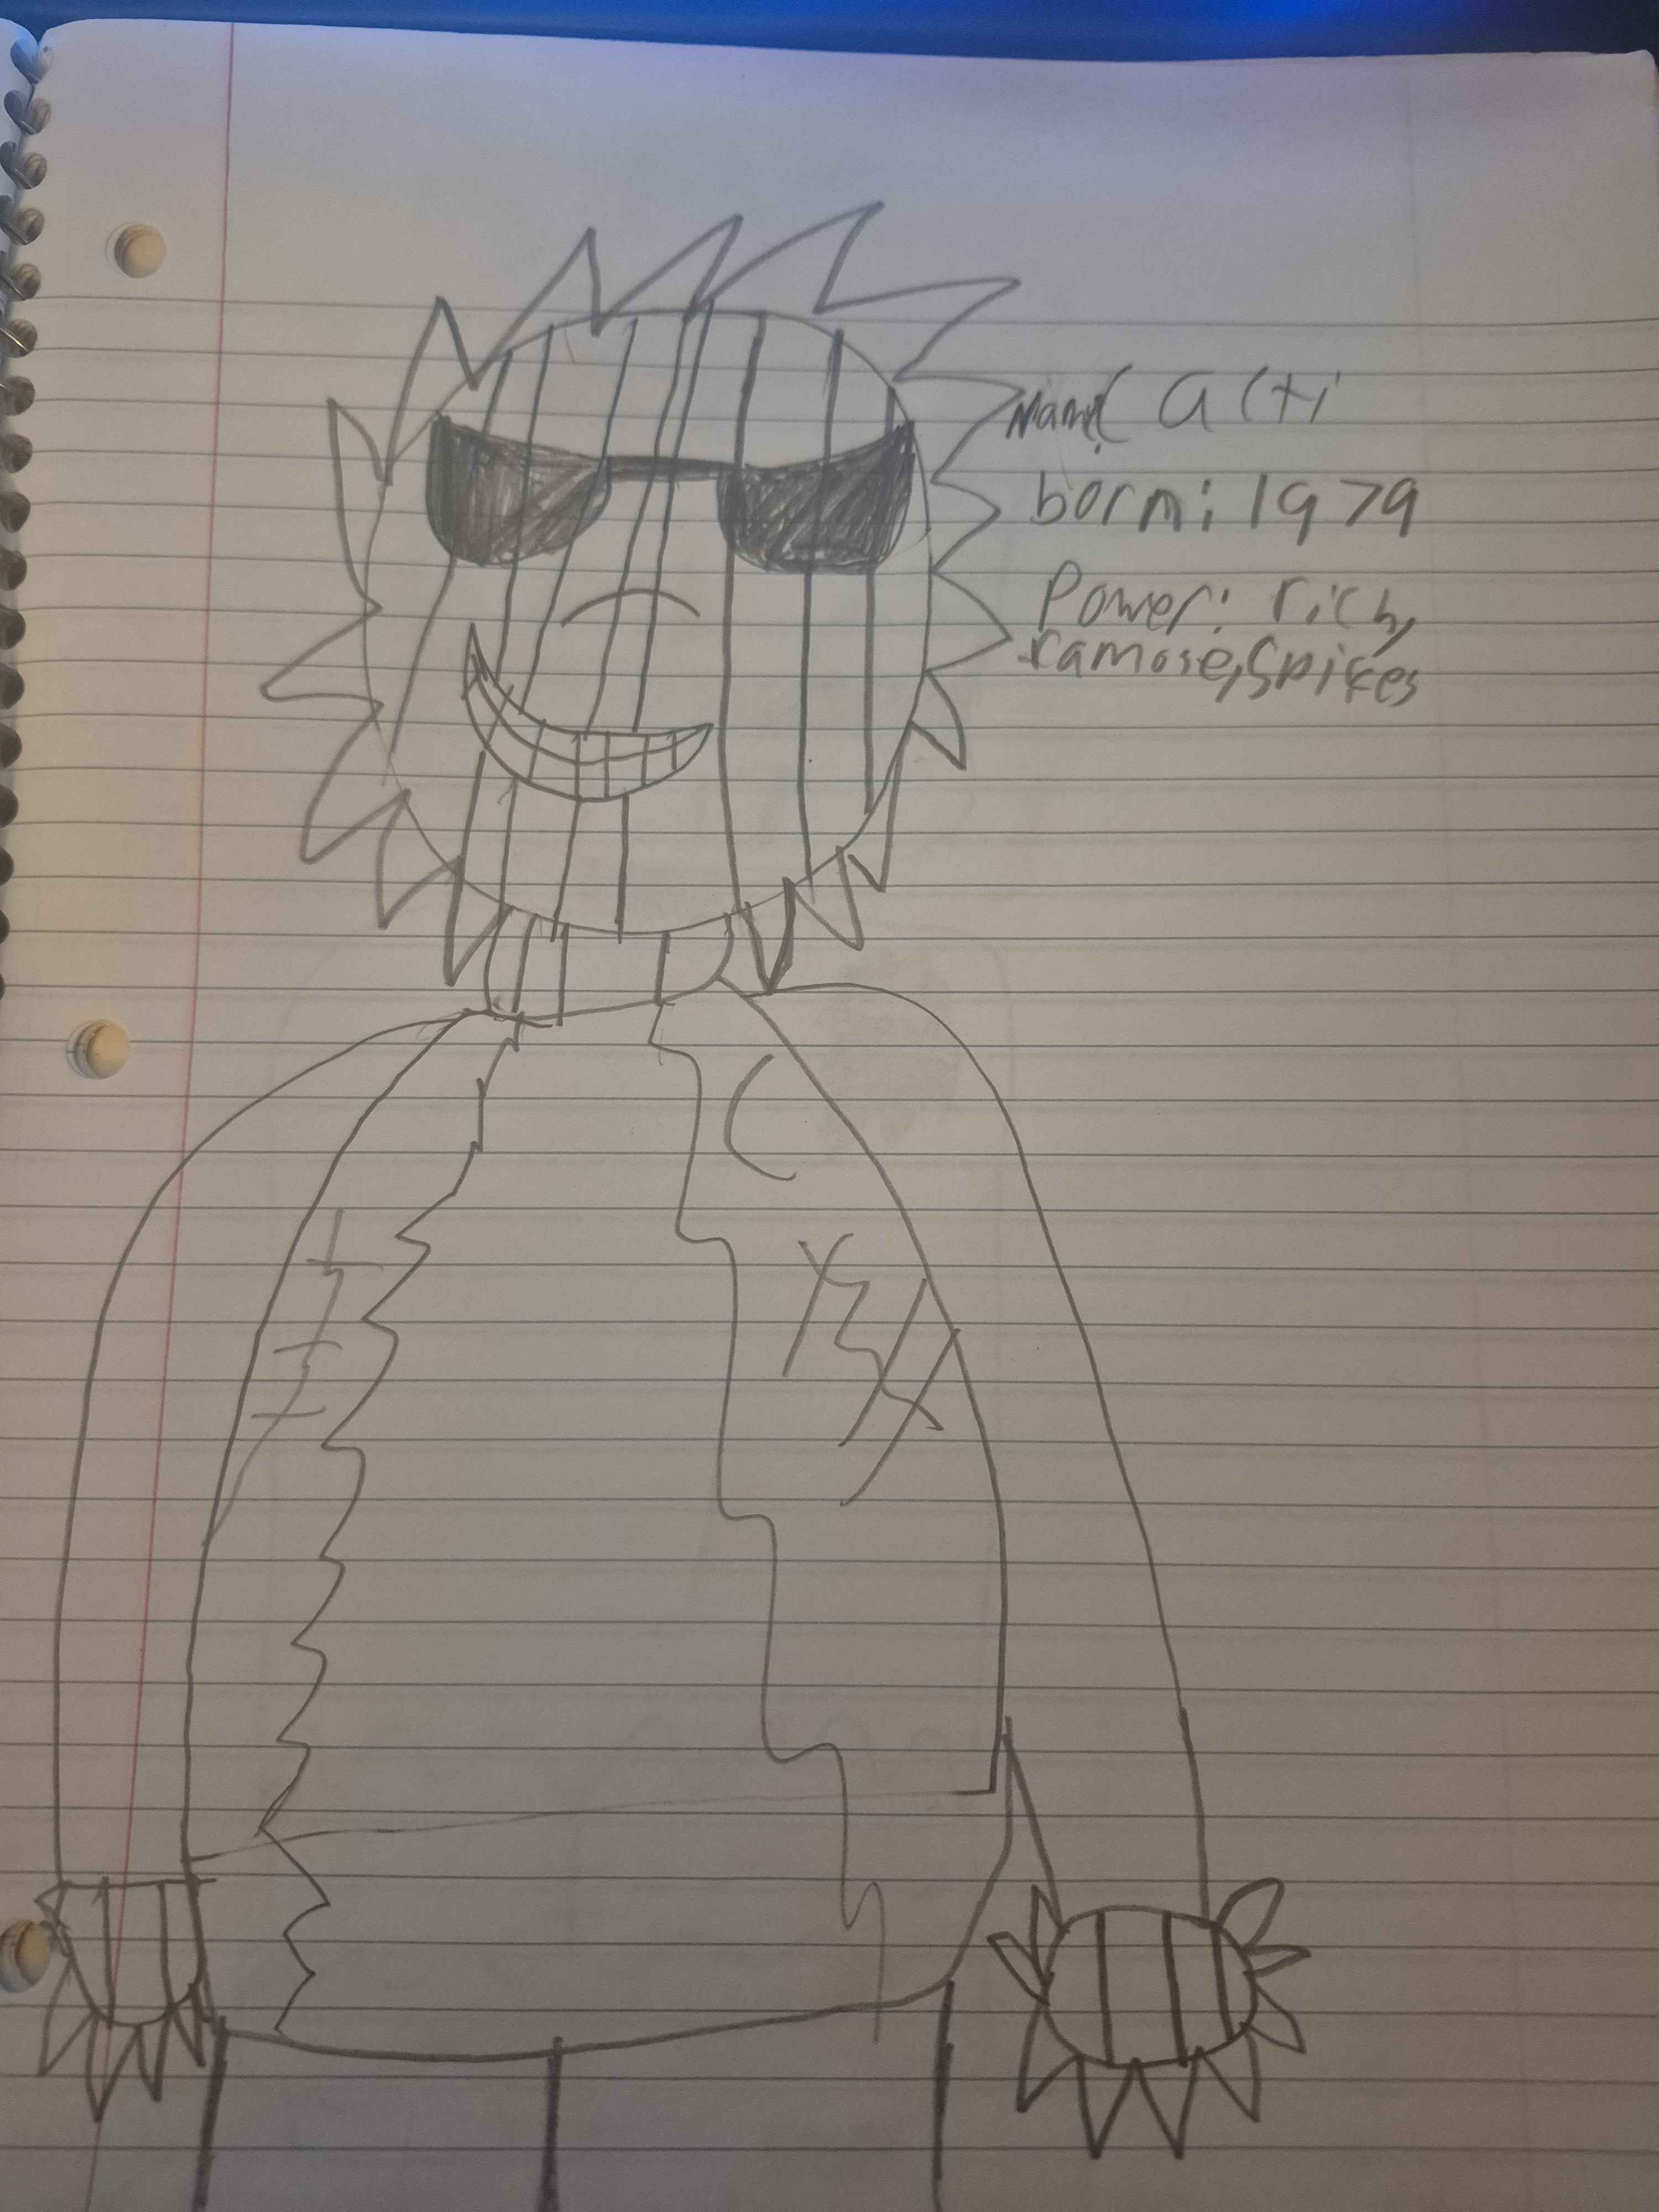 Name: acti
born: 1979
Power: rich,
ramose, Spikes